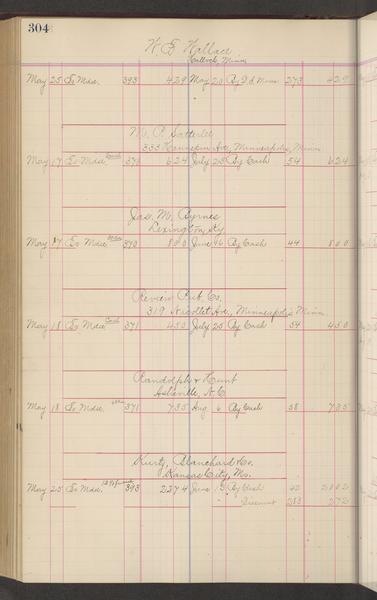 304
W. G. Wallace
Minn
May 25 To Mdse. 393 4 29 May 20 By 273 4 29
M. P. Satterlee
333 Hennepin Ave, Minneapolis, Minn
May 17 To Mdse 371 6 24 July 25 By Cash 54 6 24
Jas. M. Byrnes
Lexington, Ky
May 17 To Mdse 370 8 00 June 16 By Cash 44 8 00
Review Pub. Co.
319 Nicollet Ave, Minneapolis Minn
May 18 To Mdse Cash 371 4 50 July 25 By Cash 54 4 50
Randolph & Hunt
Asheville, N.C.
May 18 To Mdse. 371 7 35 Aug 6 By Cash 58 7 35
Kurtz, Blanchard & Co.
Kansas City, Mo.
May 25 To Mdse. 393 22 74 June By Cash 42 20 02
" Discount 283 2 72